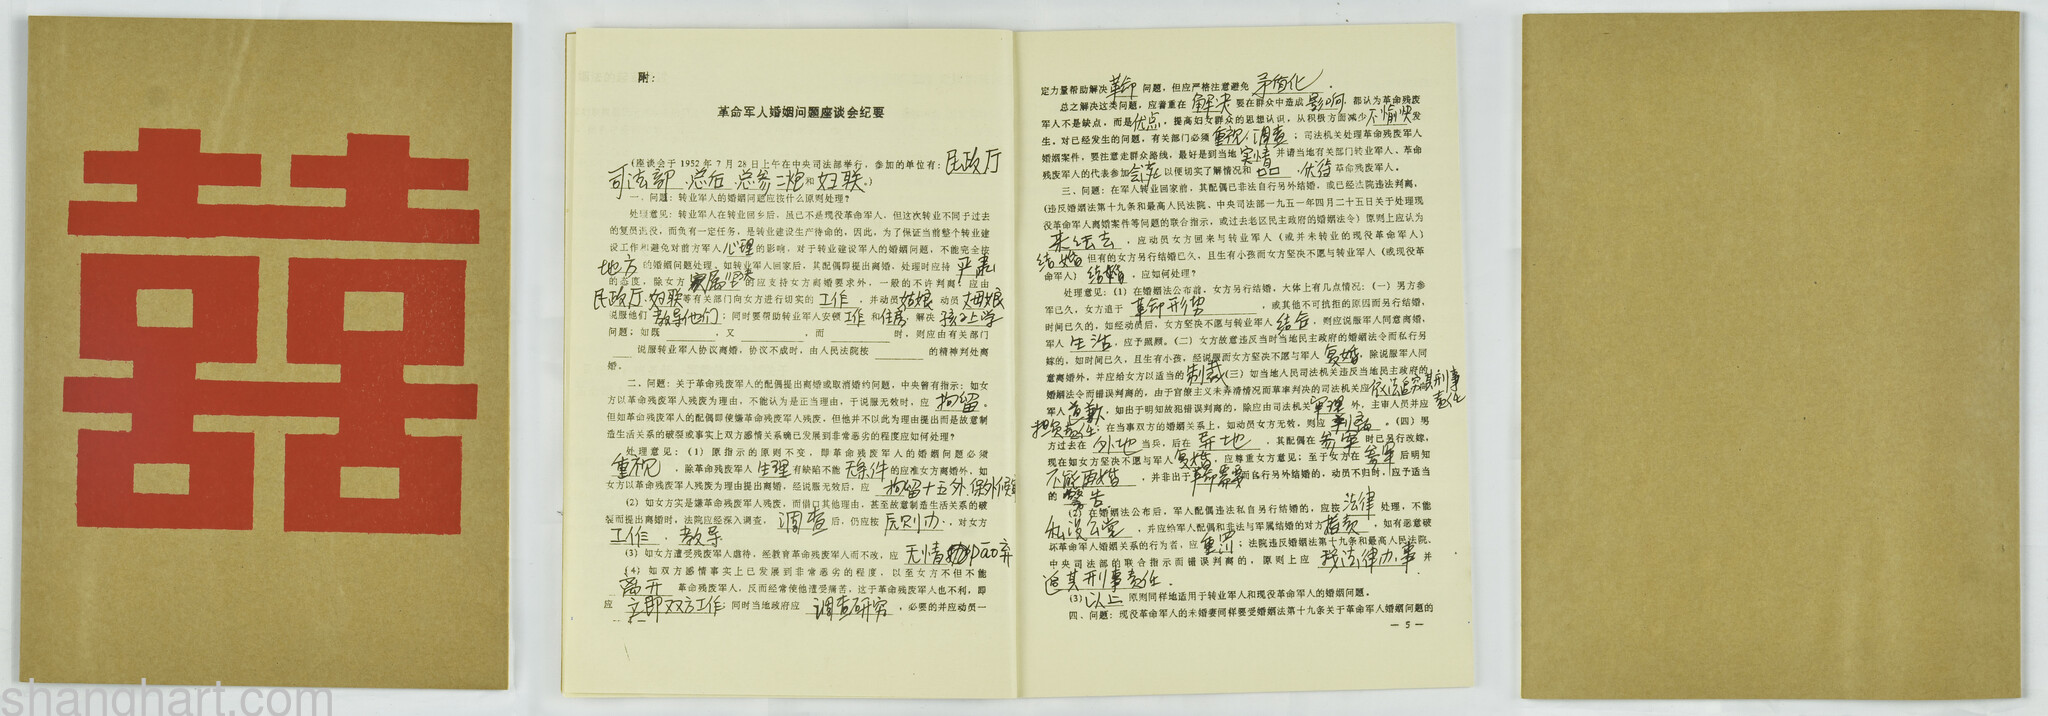 囍
附：
革命军人婚姻问题座谈会纪要
(座谈会于1952年7月28日上午在中央司法部举行，参加的单位有：民政厅
司法部 总后 总参 二炮和 妇联。)
一、问题：转业军人的婚姻问题应按什么原则处理？
处理意见：转业军人在转业回乡后，虽已不是现役革命军人，但这次转业不同于过去
的复员退役，而负有一定任务，是转业建设生产待命的，因此，为了保证当前整个转业建
设工作和避免对前方军人心理的影响，对于转业建设军人的婚姻问题，不能完全按
地方的婚姻问题处理。如转业军人回家后，其配偶即提出离婚，处理时应持严肃
的态度，除女方家属的应支持女方离婚要求外，一般的不许判离，应由
民政厅、妇联等有关部门向女方进行切实的工作，并动员姑娘 动员
说服他们 教导他们；同时要帮助转业军人安顿工作和住房，解决孩子上学
问题；如既，又，而时，则应由有关部门
说服转业军人协议离婚，协议不成时，由人民法院按的精神判处离
婚。
二、问题：关于革命残废军人的配偶提出离婚或取消婚约问题，中央曾有指示：如女
方以革命残废军人残废为理由，不能认为是正当理由，于说服无效时，应拘留。
但如革命残废军人的配偶即使嫌革命残废军人残废，但他并不以此为理由提出而是故意制
造生活关系的破裂或事实上双方感情关系确已发展到非常恶劣的程度应如何处理？
处理意见：(1)原指示的原则不变，即革命残废军人的婚姻问题必须
重视，除革命残废军人生理有缺陷不能无条件的应准女方离婚外，如
女方以革命残废军人残废为理由提出离婚，经说服无效后，应拘留十五外，保外候审
(2)如女方实是嫌革命残废军人残废，而借口其他理由，甚至故意制造生活关系的破
裂而提出离婚时，法院应经深入调查，调查后，仍应按原则办，对女方
工作、教导
(3)如女方遭受残废军人虐待，经教育革命残废军人而不改，应无情
(4)如双方感情事实上已发展到非常恶劣的程度，以至女方不但不能
离开革命残废军人，反而经常使他遭受痛苦，这于革命残废军人也不利，即
应立即双方工作；同时当地政府应调查研究，必要的并应动员一
定力量帮助解决革命问题，但应严格注意避免矛盾化。
总之解决这类问题，应着重在解决要在群众中造成影响，都认为革命残废
军人不是缺点，而是优点，提高妇女群众的思想认识，从积极方面减少不愉快发
生，对已经发生的问题，有关部门必须重视、调查；司法机关处理革命残废军人
婚姻案件，要注意走群众路线，最好是到当地实情并请当地有关部门转业军人、革命
残废军人的代表参加会议以便切实了解情况和，优待革命残废军人。
三、问题：在军人转业回家前，其配偶已非法自行另外结婚，或已经法院违法判离，
(违反婚姻法第十九条和最高人民法院、中央司法部一九五一年四月二十五日关于处理现
役革命军人离婚案件等问题的联合指示，或过去老区民主政府的婚姻法令)原则上应认为
未结去，应动员女方回来与转业军人（或并未转业的现役革命军人）
结婚但有的女方另行结婚已久，且生有小孩而女方坚决不愿与转业军人（或现役革
命军人）结婚，应如何处理？
处理意见：(1)在婚姻法公布前，女方另行结婚，大体上有几点情况：(一)男方参
军已久，女方迫于革命形势，或其他不可抗拒的原因而另行结婚，
时间已久的，如经动员后，女方坚决不愿与转业军人结合，则应说服军人同意离婚，
军人生活，应予照顾。(二)女方故意违反当时当地民主政府的婚姻法令而私行另
嫁的，如时间已久，且生有小孩，经说服而女方坚决不愿与军人复婚，除说服军人同
意离婚外，并应给女方以适当的制裁(三)如当地人民司法机关违反当地民主政府的
婚姻法令而错误判离的，由于官僚主义未弄清情况而草率判决的司法机关应依法追究其刑事责任
军人道歉，如由于明知故犯错误判离的，除应由司法机关审理外，主审人员并应
担负责任，在当事双方的婚姻关系上，如动员女方无效，则应判离。(四)男
方过去在外地当兵，后在异地，其配偶在参军时已另行改嫁，
现在如女方坚决不愿与军人复婚，应尊重女方意见；至于女方在参军后明知
不能再婚，并非出于革命需要而私行另外结婚的，动员不归时，应予适当
的警告
在婚姻法公布后，军人配偶违法私自另行结婚的，应按法律处理，不能
私设公堂，并应给军人配偶和非法与军属结婚的对方指责，如有恶意破
坏革命军人婚姻关系的行为者，应重罚；法院违反婚姻法第十九条和最高人民法院、
中央司法部的联合指示而错误判离的，原则上应找法律办事并
追其刑事责任。
(3)以上原则同样地适用于转业军人和现役革命军人的婚姻问题。
四、问题：现役革命军人的未婚妻同样要受婚姻法第十九条关于革命军人婚姻问题的
— 5 —
shanghart.com